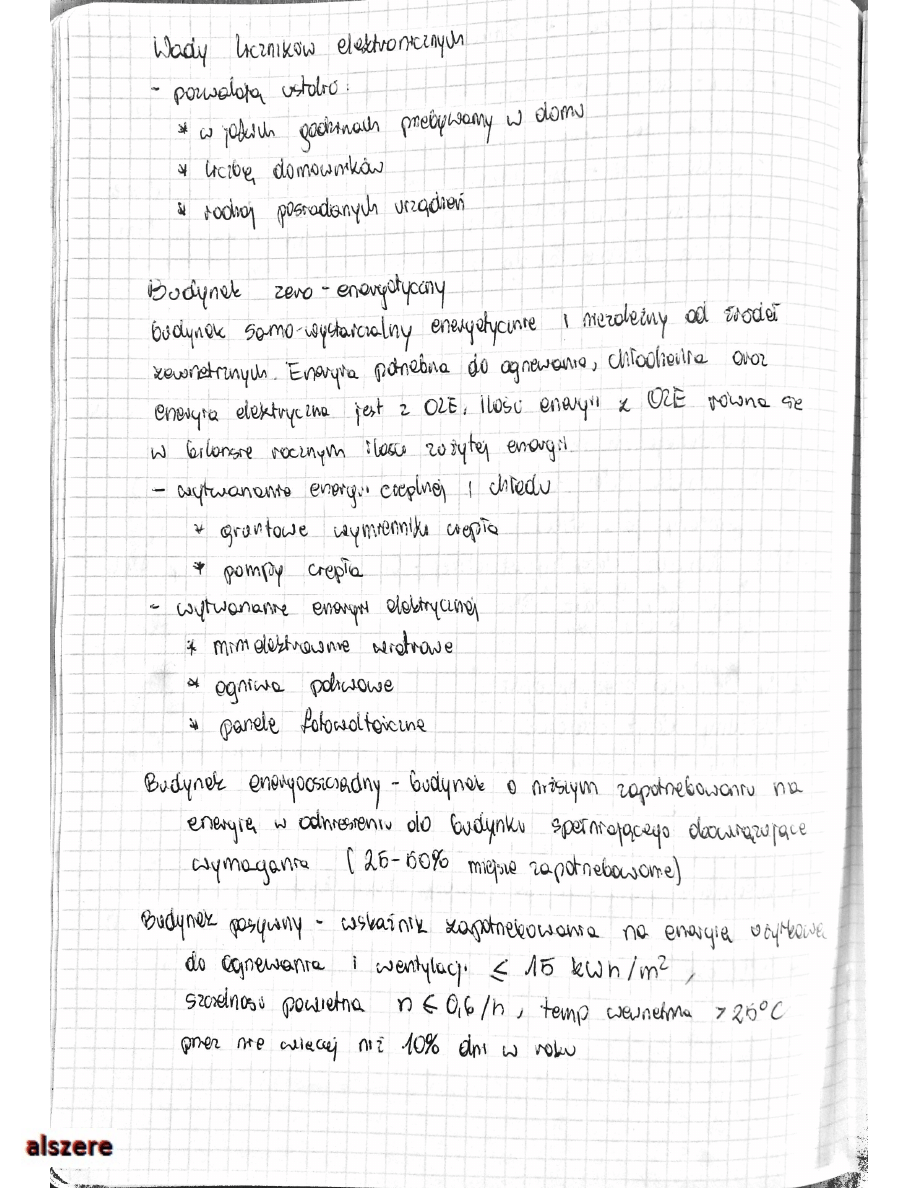 Wady liczników elektronicznych
- pozwalają ustalić:
* w jakich godzinach przebywamy w domu
* liczbę domowników
* rodzaj posiadanych urządzeń
Budynek zero-energetyczny
budynek samo-wystarczalny energetycznie i niezależny od źródeł
zewnetrznych. Energia potrzebna do ogrzewania, chłodzenia oraz
energia elektryczna jest z OZE, ilość energii z OZE równa się
w bilansie rocznym ilości zużytej energii.
- wytwarzanie energii cieplnej i chłodu
* gruntowe wymienniki ciepła
* pompy ciepła
- wytwarzanie energii elektrycznej
* minielektrownie wiatrowe
* ogniwa paliwowe
* panele fotowoltaiczne
Budynek energooszczędny - budynek o niższym zapotrzebowaniu na
energię w odniesieniu do budynku spełniającego obowiązujące
wymagania (25-50% mniejsze zapotrzebowanie)
Budynek pasywny - wskaźnik zapotrzebowania na energię użytkową
do ogrzewania i wentylacji ≤ 15 kWh/m²,
szczelność powietrzna n ≤ 0,6/h, temp wewnętrzna > 25°C
przez nie więcej niż 10% dni w roku
alszere